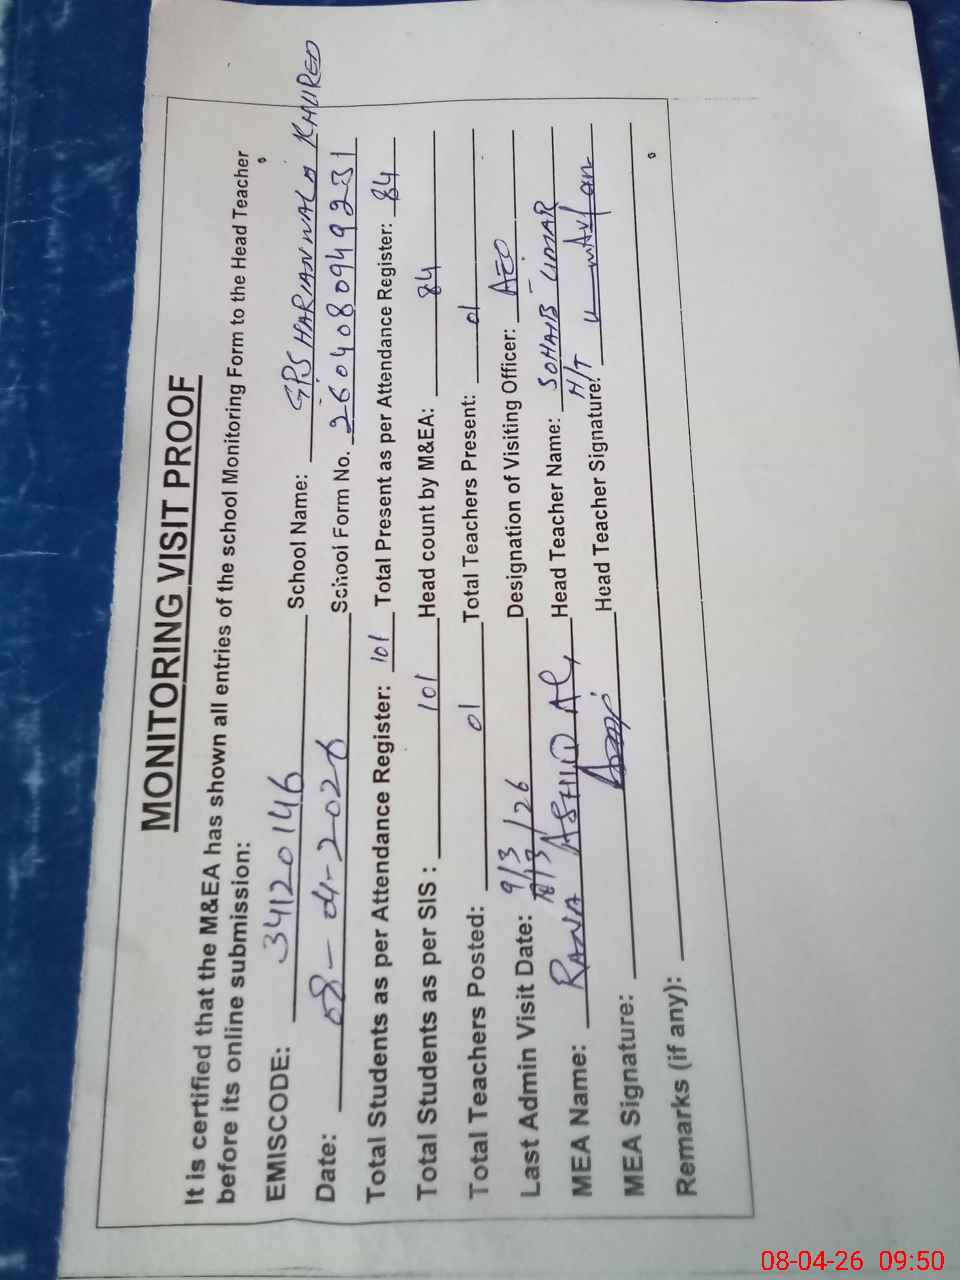 MONITORING VISIT PROOF
It is certified that the M&EA has shown all entries of the school Monitoring Form to the Head Teacher
before its online submission:
EMISCODE: 34120146 School Name: GPS HARIANWALA KHURED
Date: 08-04-2026 School Form No. 2604080949231
Total Students as per Attendance Register: 101 Total Present as per Attendance Register: 84
Total Students as per SIS: 101 Head count by M&EA: 84
Total Teachers Posted: 01 Total Teachers Present: 01
Last Admin Visit Date: 9/3/26 Designation of Visiting Officer: AEO
MEA Name: RANA Head Teacher Name: SOHAIB UMAR
MEA Signature: Head Teacher Signature: H/T
Remarks (if any):
08-04-26 09:50